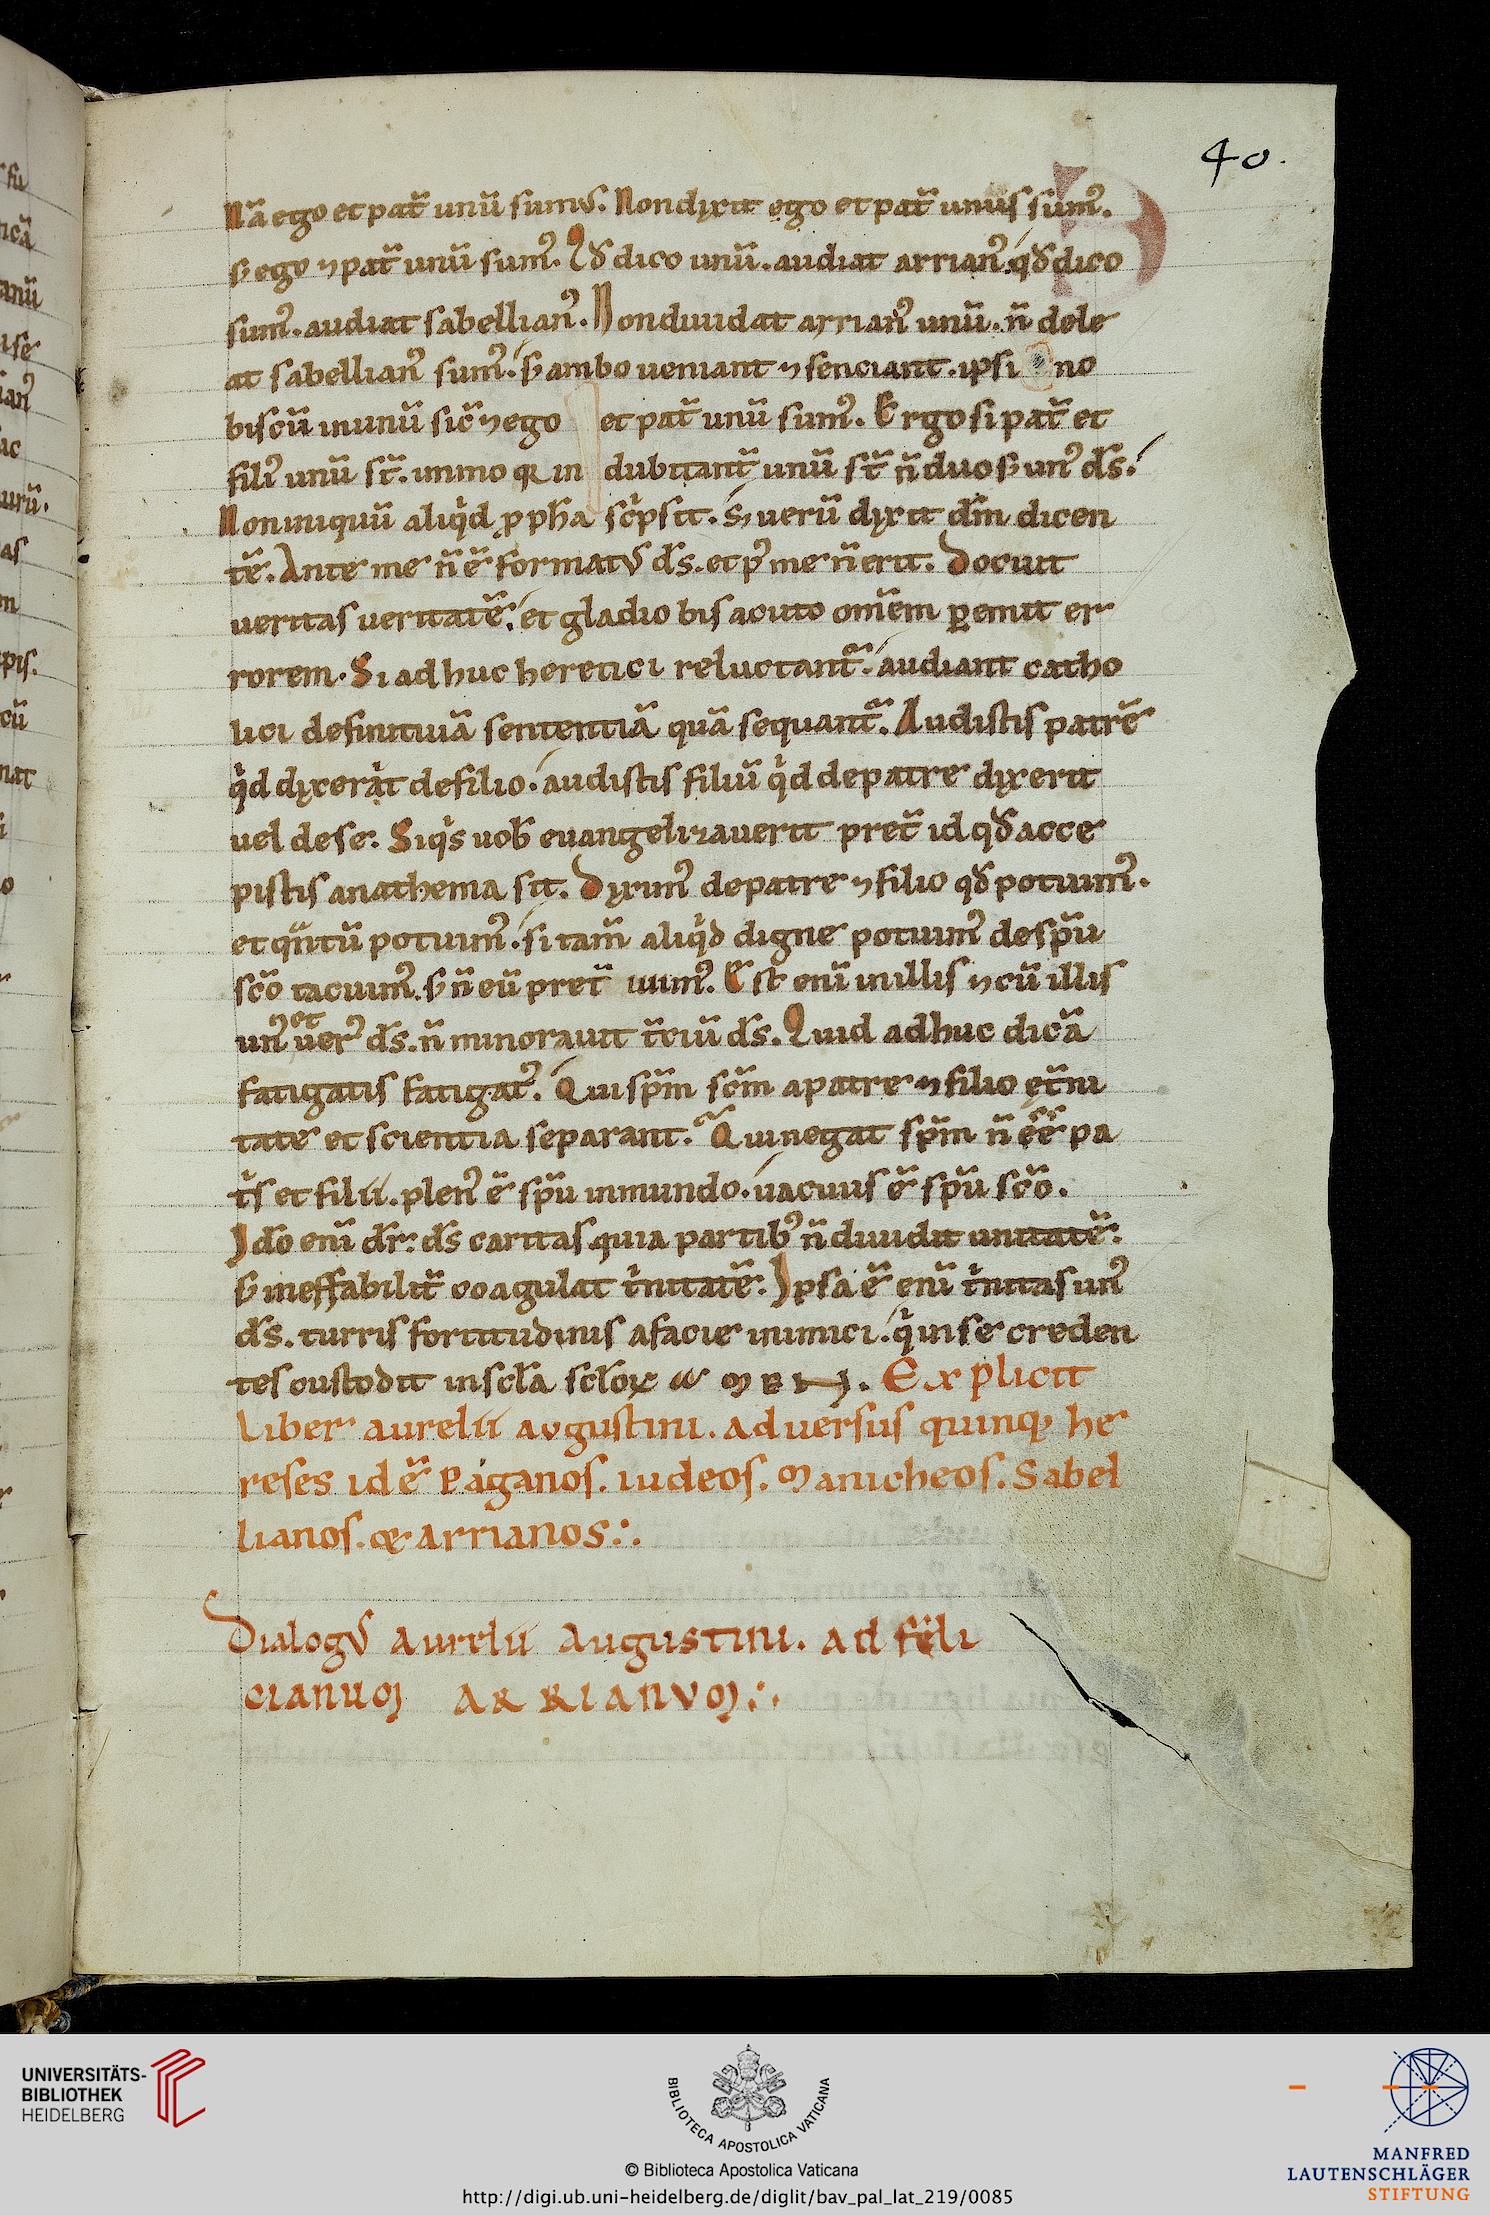 40.
Nā ego et pat̄ unū sumꝰ. Non dyxit ego et pat̄ unus sumꝰ.
sꝫ ego ⁊ pat̄ unū sumꝰ. Qđ dico unū. audiat arrianꝰ. qđ dico
sumꝰ. audiat sabellianꝰ. Non diuidat arrianꝰ unū. n̄ dele
at sabellianꝰ sumꝰ. sꝫ ambo ueniant ⁊ senciant. ipsi no
biscū in unū sic̄ ⁊ ego et pat̄ unū sumꝰ. Ergo si pat̄ et
filiꝰ unū st̄. immo qꝛ in dubitant̄ unū st̄ n̄ duo sꝫ unꝰ d̄s.
Non iniquū aliqͥd ꝓph̄a sc̄psit. Sꝫ uerū dyxit dn̄m dicen
tē. Ante me n̄ ē formatꝰ d̄s. et pꝰ me n̄ erit. Docuit
ueritas ueritatē. et gladio bis acuto om̄em ꝑemit er
rorem. Si adhuc heretici reluctant̄. audiant catho
lici definitiuā sententiā quā sequant̄. Audistis patrē
qͥd dyxerit de filio. audistis filiū qͥd de patre dyxerit
uel de se. Siqͥs uob̄ euangelizauerit pret̄ id qđ acce
pistis anathema sit. Dyximꝰ de patre ⁊ filio qđ potuimꝰ.
et qͣntū potuimꝰ. si tam̄ aliqͥd digne potuimꝰ de sp̄u
sc̄o tacuimꝰ. sꝫ n̄ eū pret̄ iuimꝰ. Est enī in illis ⁊ cū illis
unꝰ et uerꝰ d̄s. n̄ minorauit t̄ciū d̄s. Quid adhuc dicā
fatigatis fatigatꝰ. Qui sp̄m sc̄m a patre ⁊ filio ęt̄ni
tate et scientia separant. Qui negat sp̄m n̄ ēē pa
tͥs et filii. plenꝰ ē sp̄u inmundo. uacuus ē sp̄u sc̄o.
Ido enī dr̄: d̄s caritas quia partibꝰ n̄ diuidit unitatē:
sꝫ ineffabilit̄ coagulat tͥnitatē. Ipsa ē enī tͥnitas unꝰ
d̄s. turris fortitudinis a facie inimici. qͥ in se creden
tes custodit in scl̄a scl̄oꝝ AMEN. Explicit
liber aurelii augustini. aduersus quinqꝫ he
reses id ē Paganos. iudeos. Manicheos. Sabel
lianos. & arrianos:.
Dialogꝰ Aurelii Augustini. ad feli
cianum ARRIANVM:.
UNIVERSITÄTS-
BIBLIOTHEK
HEIDELBERG
BIBLIOTECA APOSTOLICA VATICANA
© Biblioteca Apostolica Vaticana
http://digi.ub.uni-heidelberg.de/diglit/bav_pal_lat_219/0085
MANFRED
LAUTENSCHLÄGER
STIFTUNG